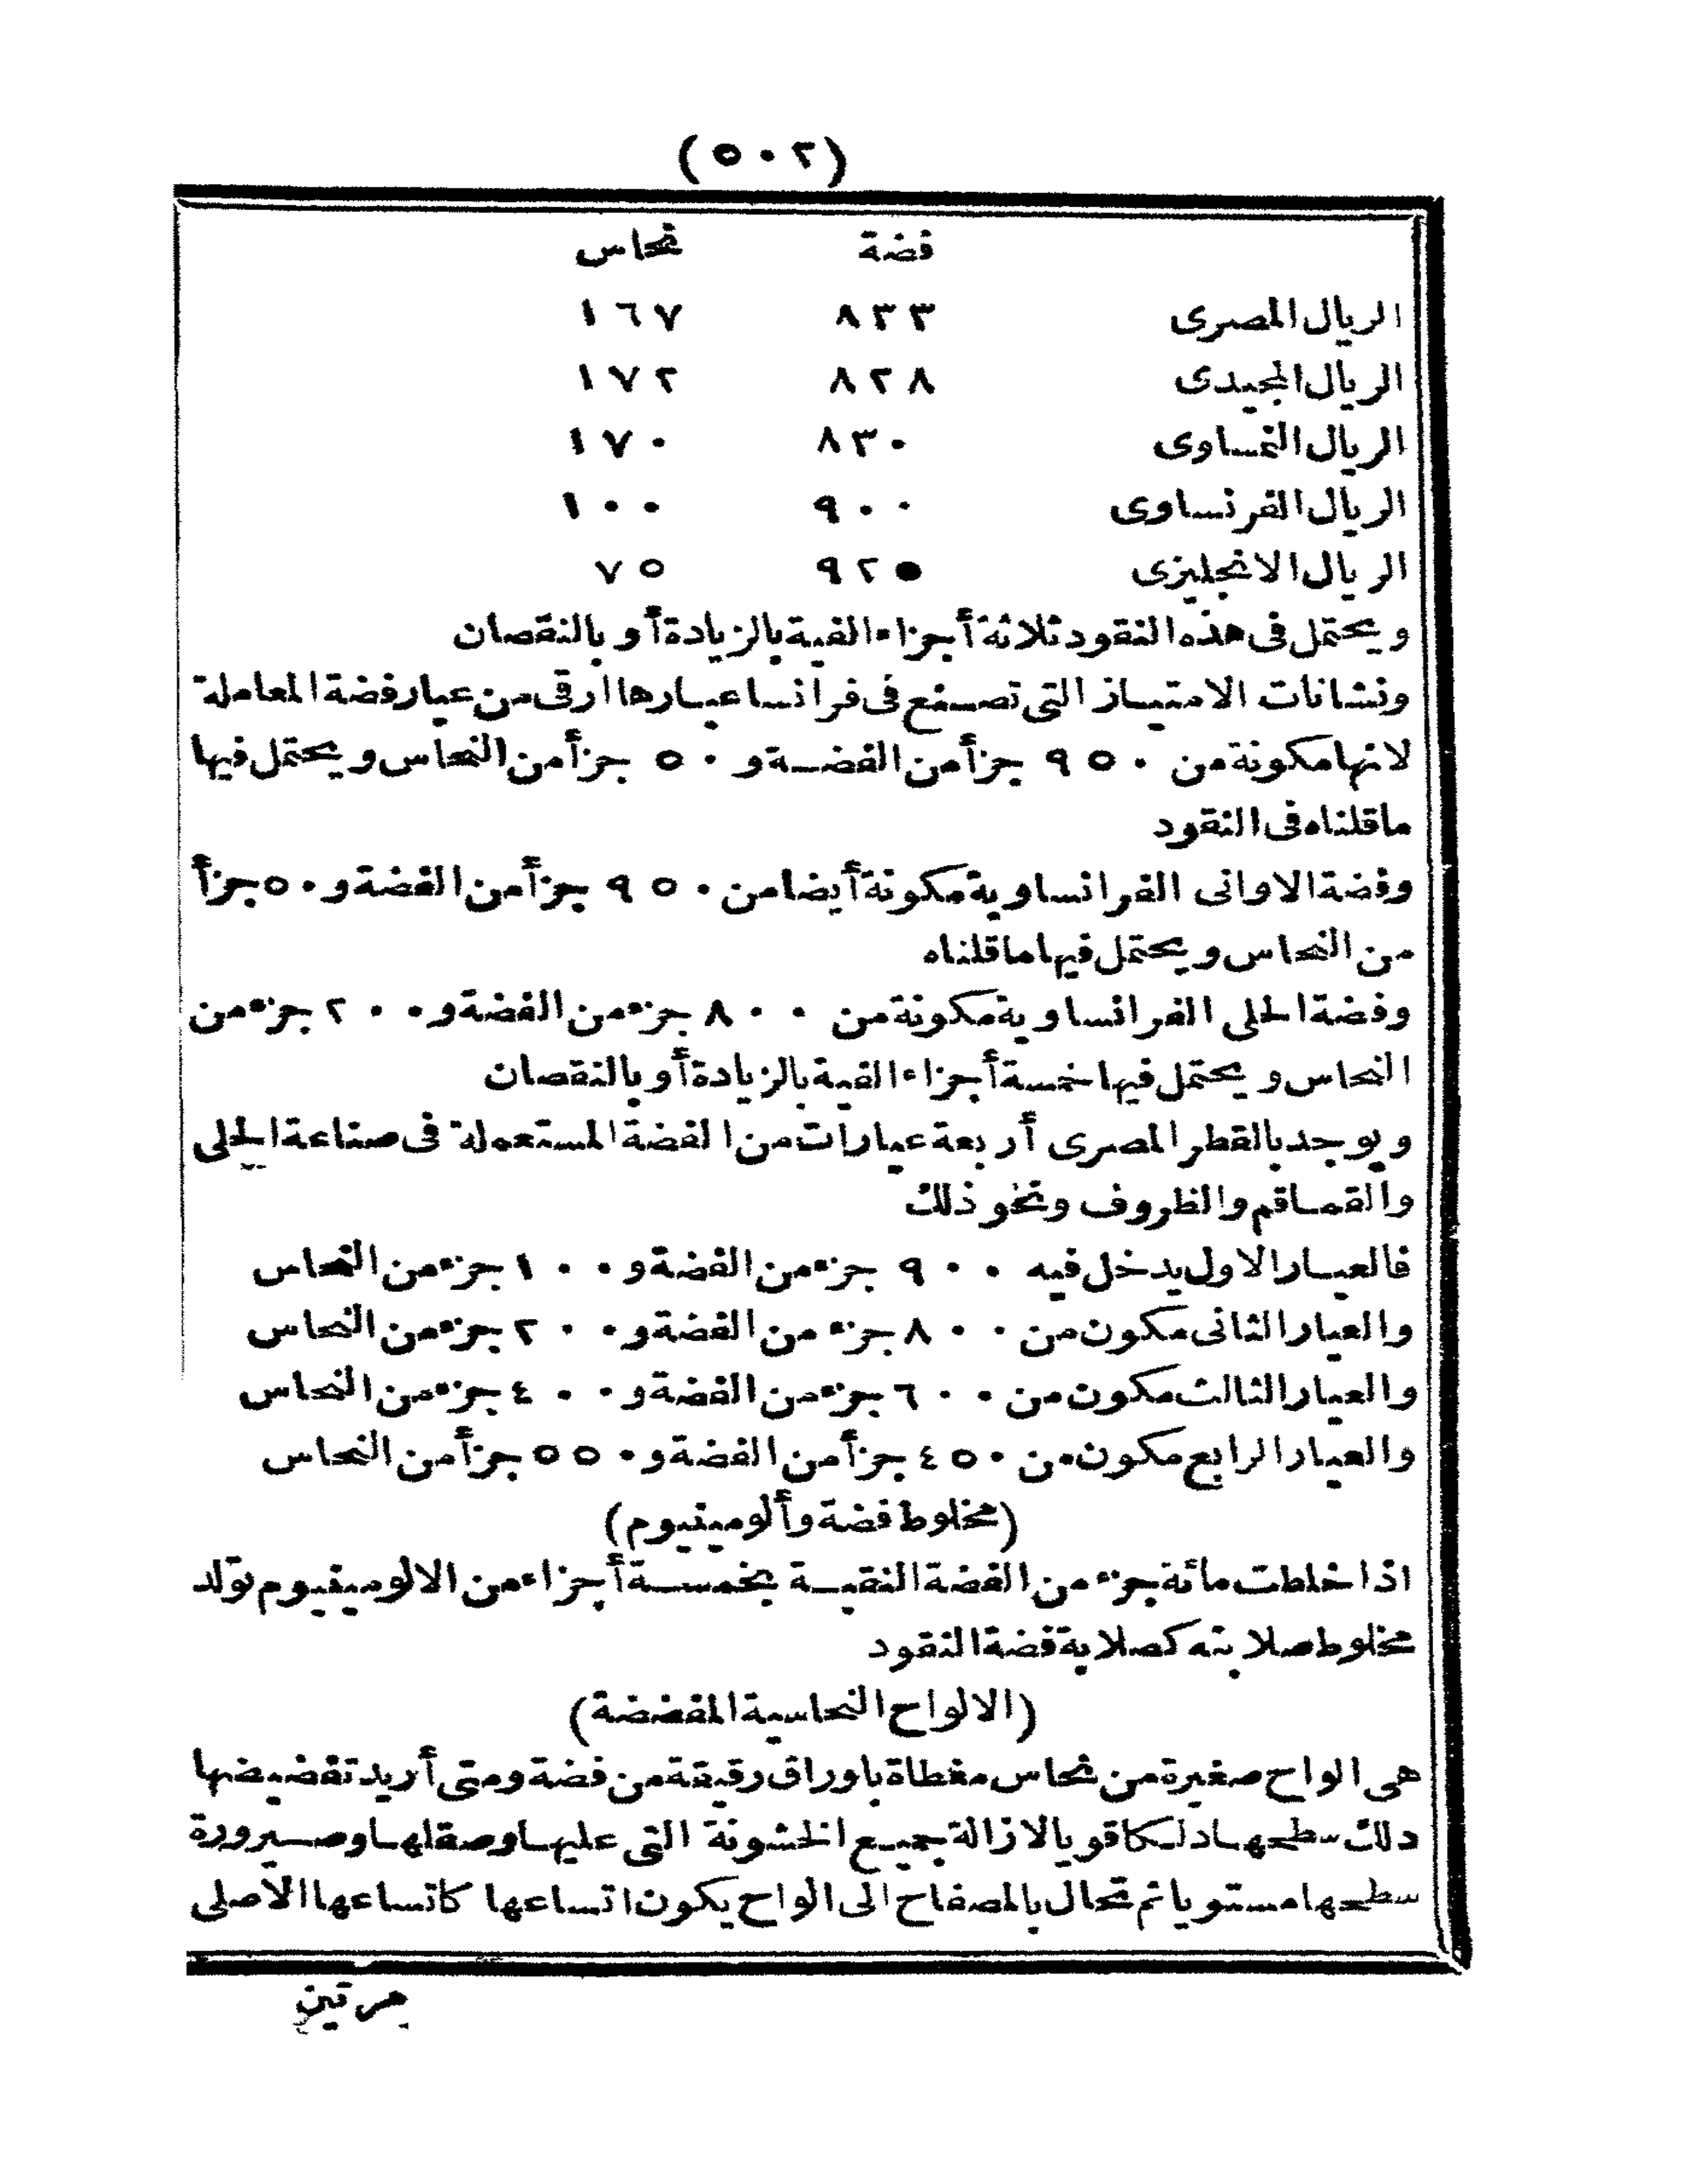 (٥٠٢)
فضة نحاس
الريال المصرى ٨٣٣ ١٦٧
الريال المجيدى ٨٢٨ ١٧٢
الريال النمساوى ٨٣٠ ١٧٠
الريال الفرنساوى ٩٠٠ ١٠٠
الريال الانجليزى ٩٢٥ ٧٥
ويحتمل فى هذه النقود ثلاثة أجزاء الفية بالزيادة أو بالنقصان
ونشانات الامتياز التى تصنع فى فرانسا عيارها ارقى من عيار فضة المعاملة
لانها مكونة من ٩٥٠ جزأ من الفضة و ٥٠ جزأ من النحاس ويحتمل فيها
ما قلناه فى النقود
وفضة الاوانى الفرانساوية مكونة أيضا من ٩٥٠ جزأ من الفضة و ٥٠ جزأ
من النحاس ويحتمل فيها ما قلناه
وفضة الحلى الفرانساوية مكونة من ٨٠٠ جزء من الفضة و ٢٠٠ جزء من
النحاس ويحتمل فيها خمسة أجزاء الفية بالزيادة أو بالنقصان
ويوجد بالقطر المصرى أربعة عيارات من الفضة المستعملة فى صناعة الحلى
والقماقم والظروف ونحو ذلك
فالعيار الاول يدخل فيه ٩٠٠ جزء من الفضة و ١٠٠ جزء من النحاس
والعيار الثانى مكون من ٨٠٠ جزء من الفضة و ٢٠٠ جزء من النحاس
والعيار الثالث مكون من ٦٠٠ جزء من الفضة و ٤٠٠ جزء من النحاس
والعيار الرابع مكون من ٤٥٠ جزأ من الفضة و ٥٥٠ جزأ من النحاس
(مخلوط فضة وألومينيوم)
اذا خلطت مائة جزء من الفضة النقية بخمسة أجزاء من الالومينيوم تولد
مخلوط صلابته كصلابة فضة النقود
(الالواح النحاسية المفضضة)
هى الواح صغيرة من نحاس مغطاة باوراق رقيقة من فضة ومتى أريد تفضيضها
دلك سطحها دلكا قويا لازالة جميع الخشونة التى عليها وصقلها وصيرورة
سطحها مستويا ثم تحال بالمصفاح الى الواح يكون اتساعها كاتساعها الاصلى
مرتين